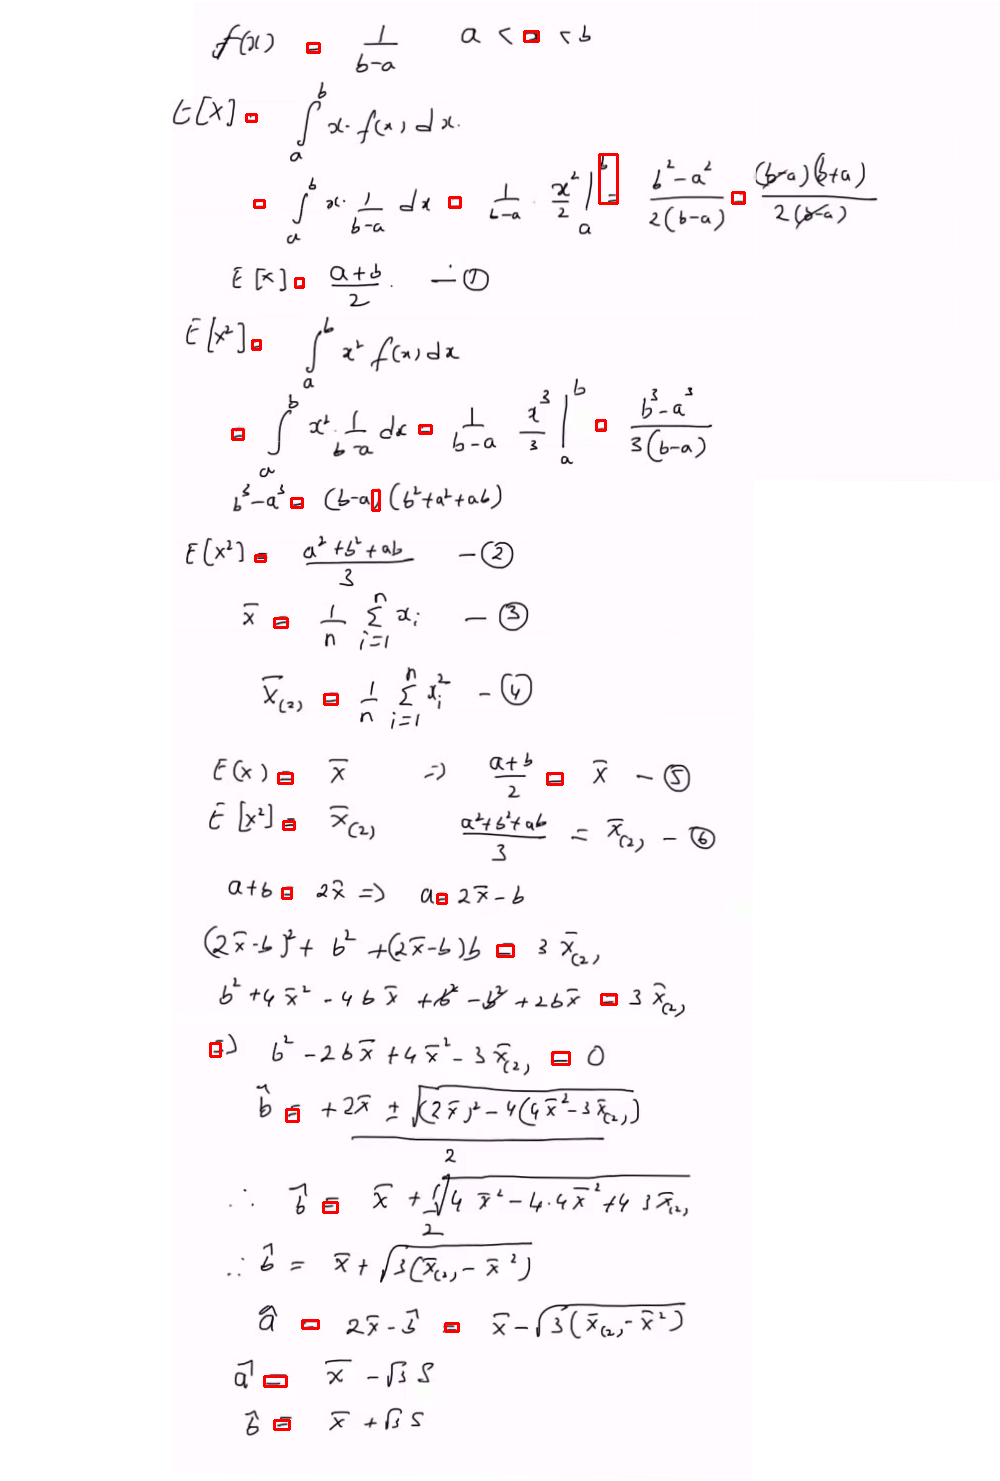 f(x) = 1/(b-a) a < x < b
E[X] = ∫_a^b x · f(x) dx.
= ∫_a^b x · 1/(b-a) dx = 1/(b-a) · x²/2 |_a^b = (b²-a²)/(2(b-a)) = (b-a)(b+a)/(2(b-a))
E[x] = (a+b)/2 . — ①
E[x²] = ∫_a^b x² f(x) dx
= ∫_a^b x² · 1/(b-a) dx = 1/(b-a) x³/3 |_a^b = (b³-a³)/(3(b-a))
b³-a³ = (b-a) (b²+a²+ab)
E[X²] = (a²+b²+ab)/3 — ②
x̄ = 1/n Σ_{i=1}^n x_i — ③
x̄_(2) = 1/n Σ_{i=1}^n x_i² — ④
E(x) = x̄ ⇒ (a+b)/2 = x̄ — ⑤
E[x²] = x̄_(2) (a²+b²+ab)/3 = x̄_(2) — ⑥
a+b = 2x̄ ⇒ a = 2x̄-b
(2x̄-b)² + b² + (2x̄-b)b = 3x̄_(2)
b² + 4x̄² - 4bx̄ + b² - b² + 2bx̄ = 3x̄_(2)
⇒ b² - 2bx̄ + 4x̄² - 3x̄_(2) = 0
b̂ = (+2x̄ ± √((2x̄)² - 4(4x̄² - 3x̄_(2))))/2
∴ b̂ = x̄ + √(4x̄² - 4·4x̄² + 4 3x̄_(2))/2
∴ b̂ = x̄ + √(3(x̄_(2) - x̄²))
â = 2x̄ - b̂ = x̄ - √(3(x̄_(2) - x̄²))
â = x̄ - √3 S
b̂ = x̄ + √3 S